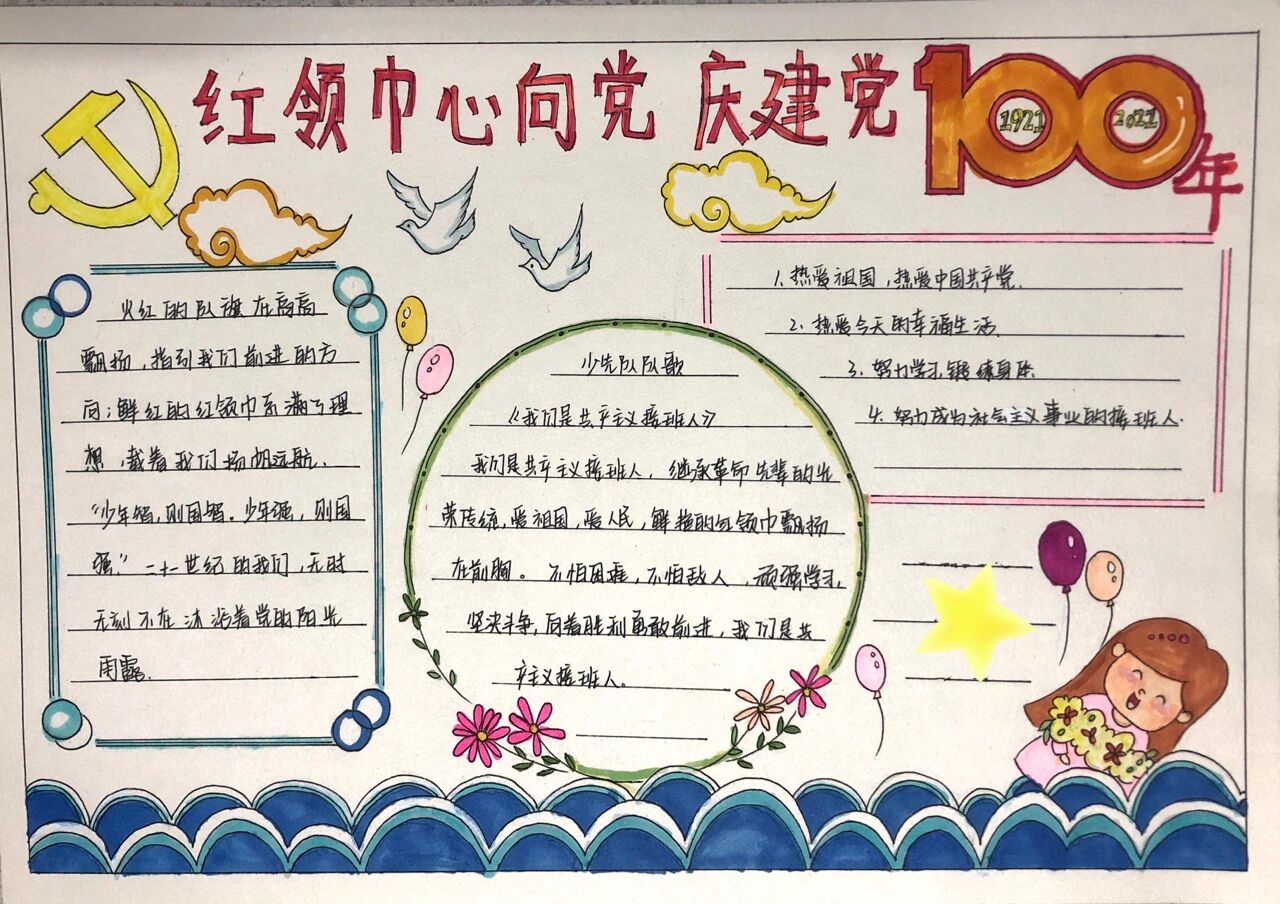 红领巾心向党 庆建党100年
1921
2021
火红的队旗在高高
飘扬，指引我们前进的方
向；鲜红的红领巾系满了理
想，载着我们扬帆远航.
“少年智，则国智。少年强，则国
强”二十一世纪的我们，无时
无刻不在沐浴着党的阳光
雨露.
少先队队歌
《我们是共产主义接班人》
我们是共产主义接班人，继承革命先辈的光
荣传统，爱祖国，爱人民，鲜艳的红领巾飘扬
在前胸。不怕困难，不怕敌人，顽强学习，
坚决斗争，向着胜利勇敢前进，我们是共
产主义接班人.
1.热爱祖国，热爱中国共产党.
2.热爱今天的幸福生活.
3.努力学习,锻练身体
4.努力成为社会主义事业的接班人.